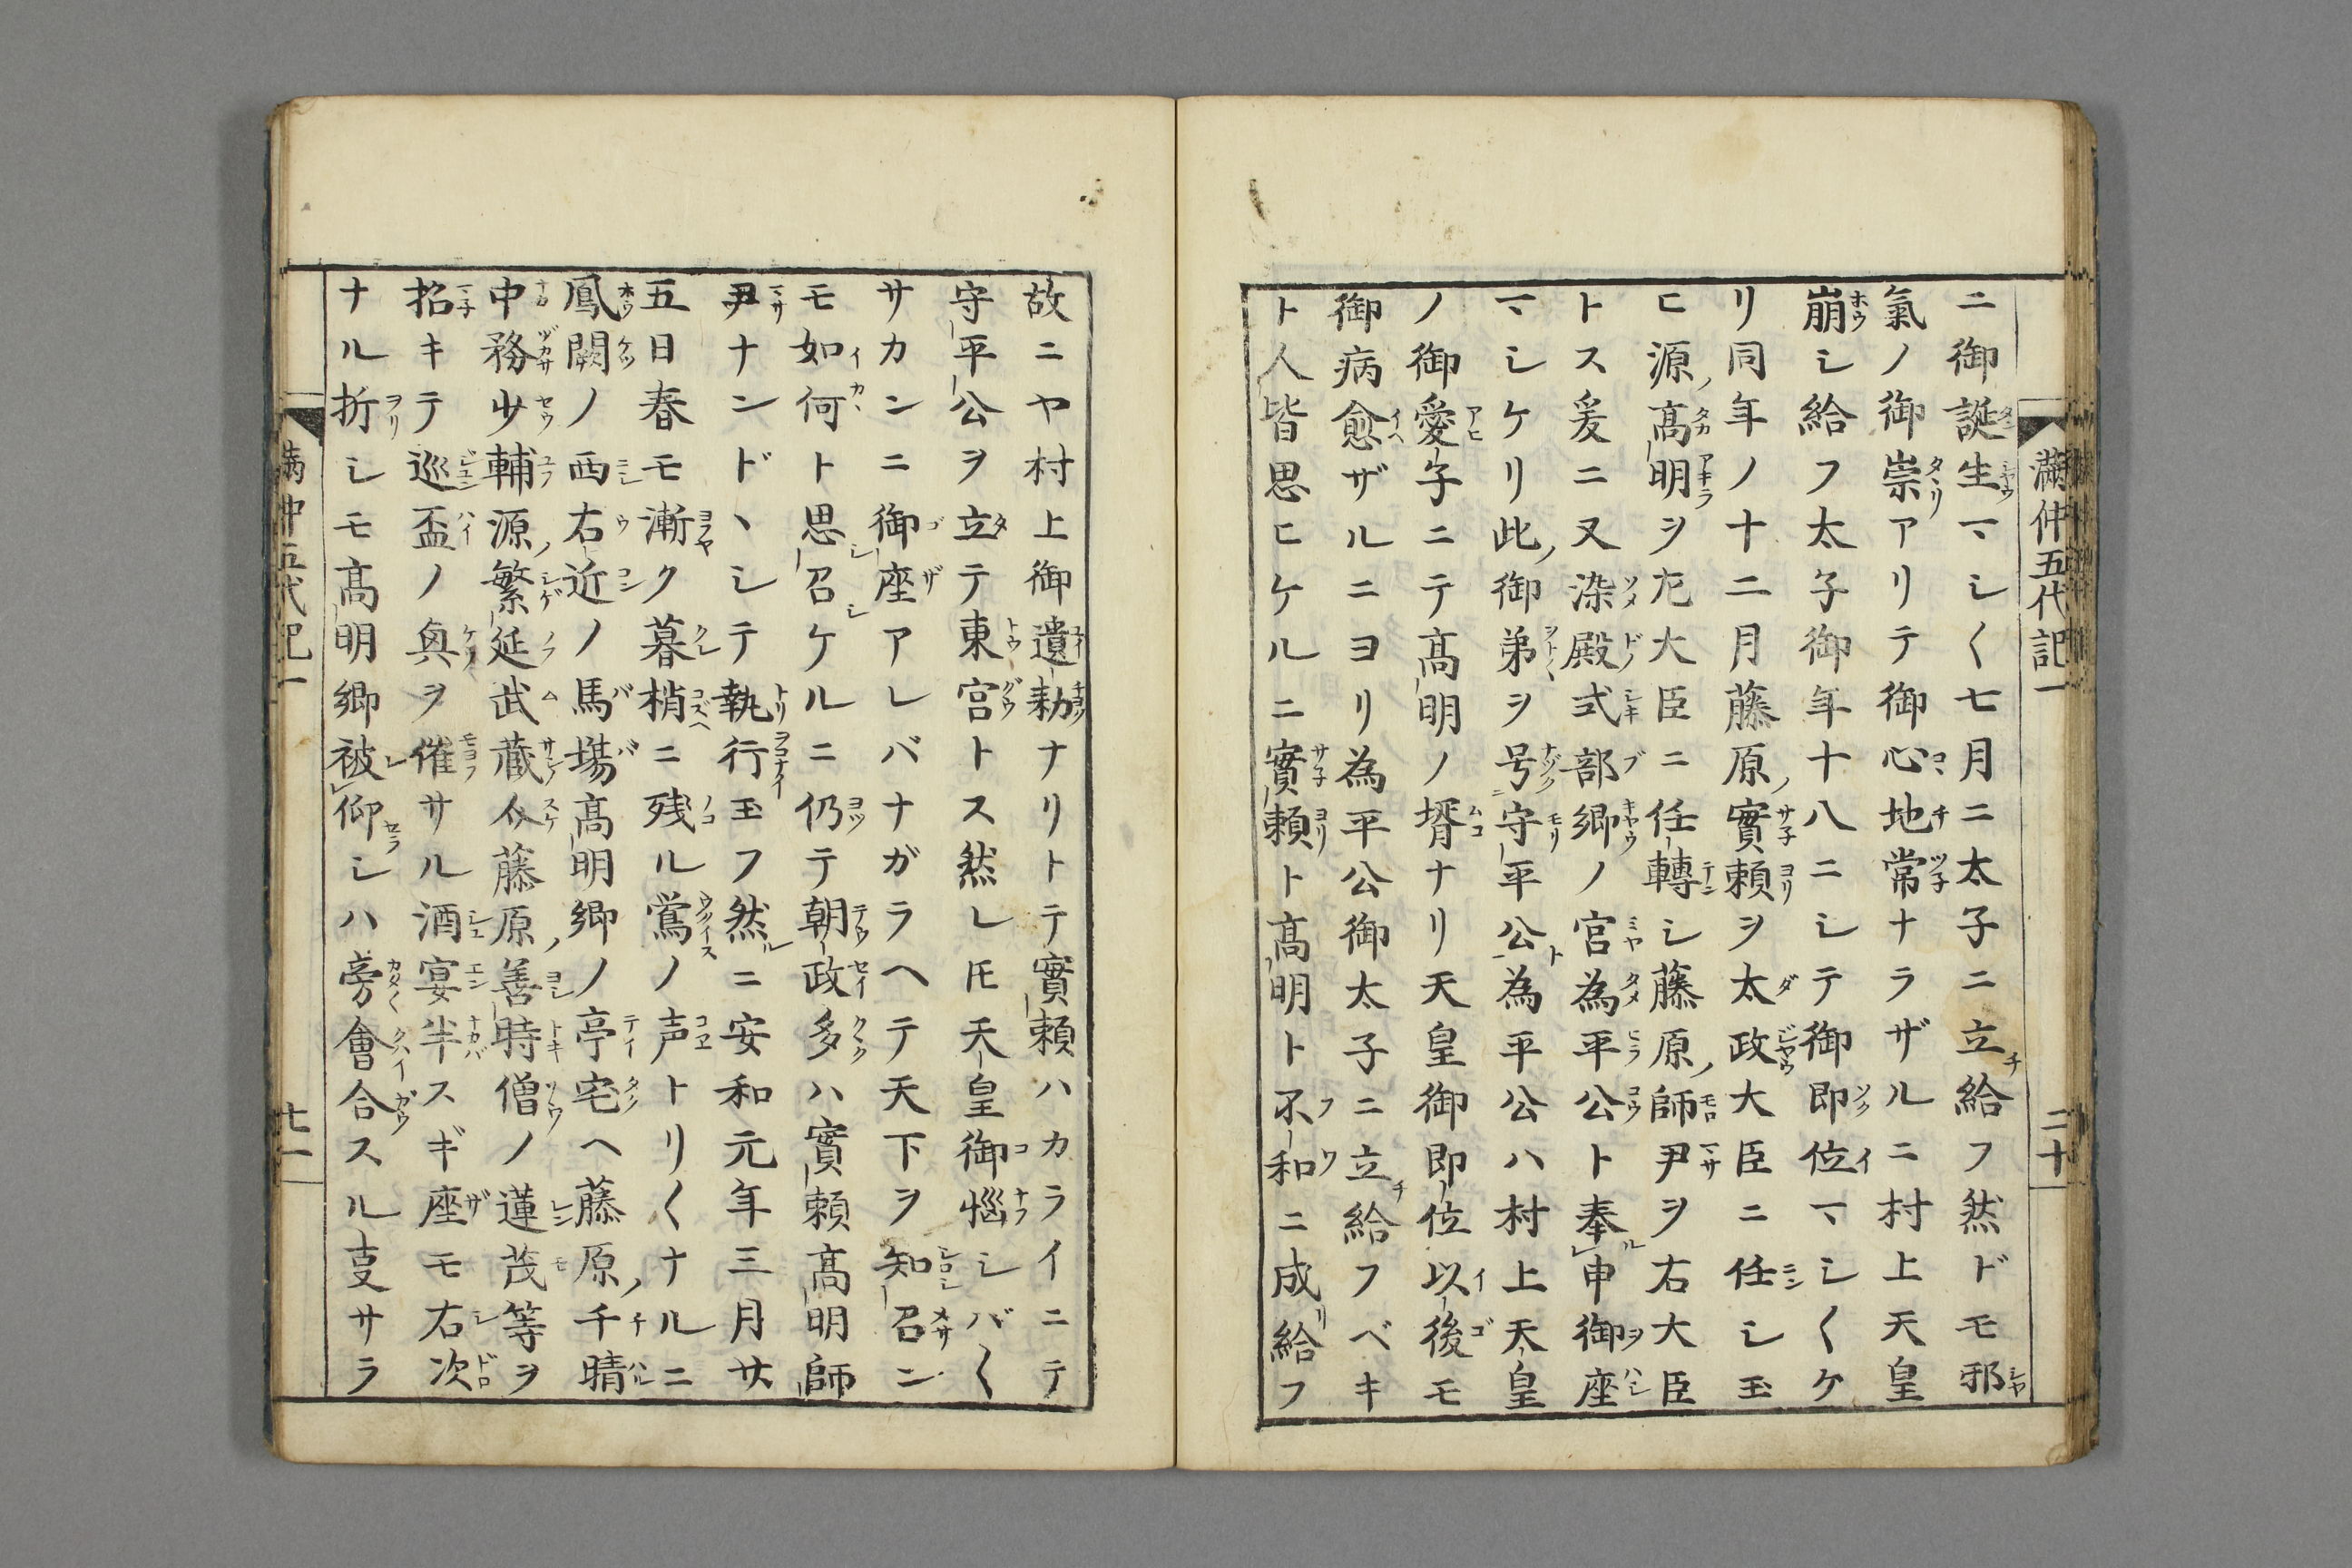 満仲五代記一
二十
ニ御誕生マシ〱七月ニ太子ニ立給フ然ドモ邪
氣ノ御崇アリテ御心地常ナラザルニ村上天皇
崩シ給フ太子御年十八ニシテ御即位マシ〱ケ
リ同年ノ十二月藤原實頼ヲ太政大臣ニ任シ玉
ヒ源髙明ヲ左大臣ニ任轉シ藤原師尹ヲ右大臣
トス爰ニ又染殿式部卿ノ宮為平公ト奉申御座
マシケリ此御弟ヲ号守平公為平公ハ村上天皇
ノ御愛子ニテ髙明ノ壻ナリ天皇御即位以後モ
御病愈ザルニヨリ為平公御太子ニ立給フベキ
ト人皆思ヒケルニ實頼ト髙明ト不和ニ成給フ
故ニヤ村上御遺勅ナリトテ實頼ハカライニテ
守平公ヲ立テ東宮トス然レ𪜈天皇御惱シバ〱
サカンニ御座アレバナガラヘテ天下ヲ知召ン
モ如何ト思召ケルニ仍テ朝政多ハ實頼髙明師
尹ナンドヽシテ執行玉フ然ニ安和元年三月廿
五日春モ漸ク暮梢ニ残ル鴬ノ声トリ〱ナルニ
鳳闕ノ西右近ノ馬塲髙明卿ノ亭宅ヘ藤原千晴
中務少輔源繁延武蔵介藤原善時僧ノ蓮茂等ヲ
招キテ巡盃ノ興ヲ催サル酒宴半スギ座モ右次
ナル折シモ髙明卿被仰シハ旁會合スル㕝サラ
満仲五代記一